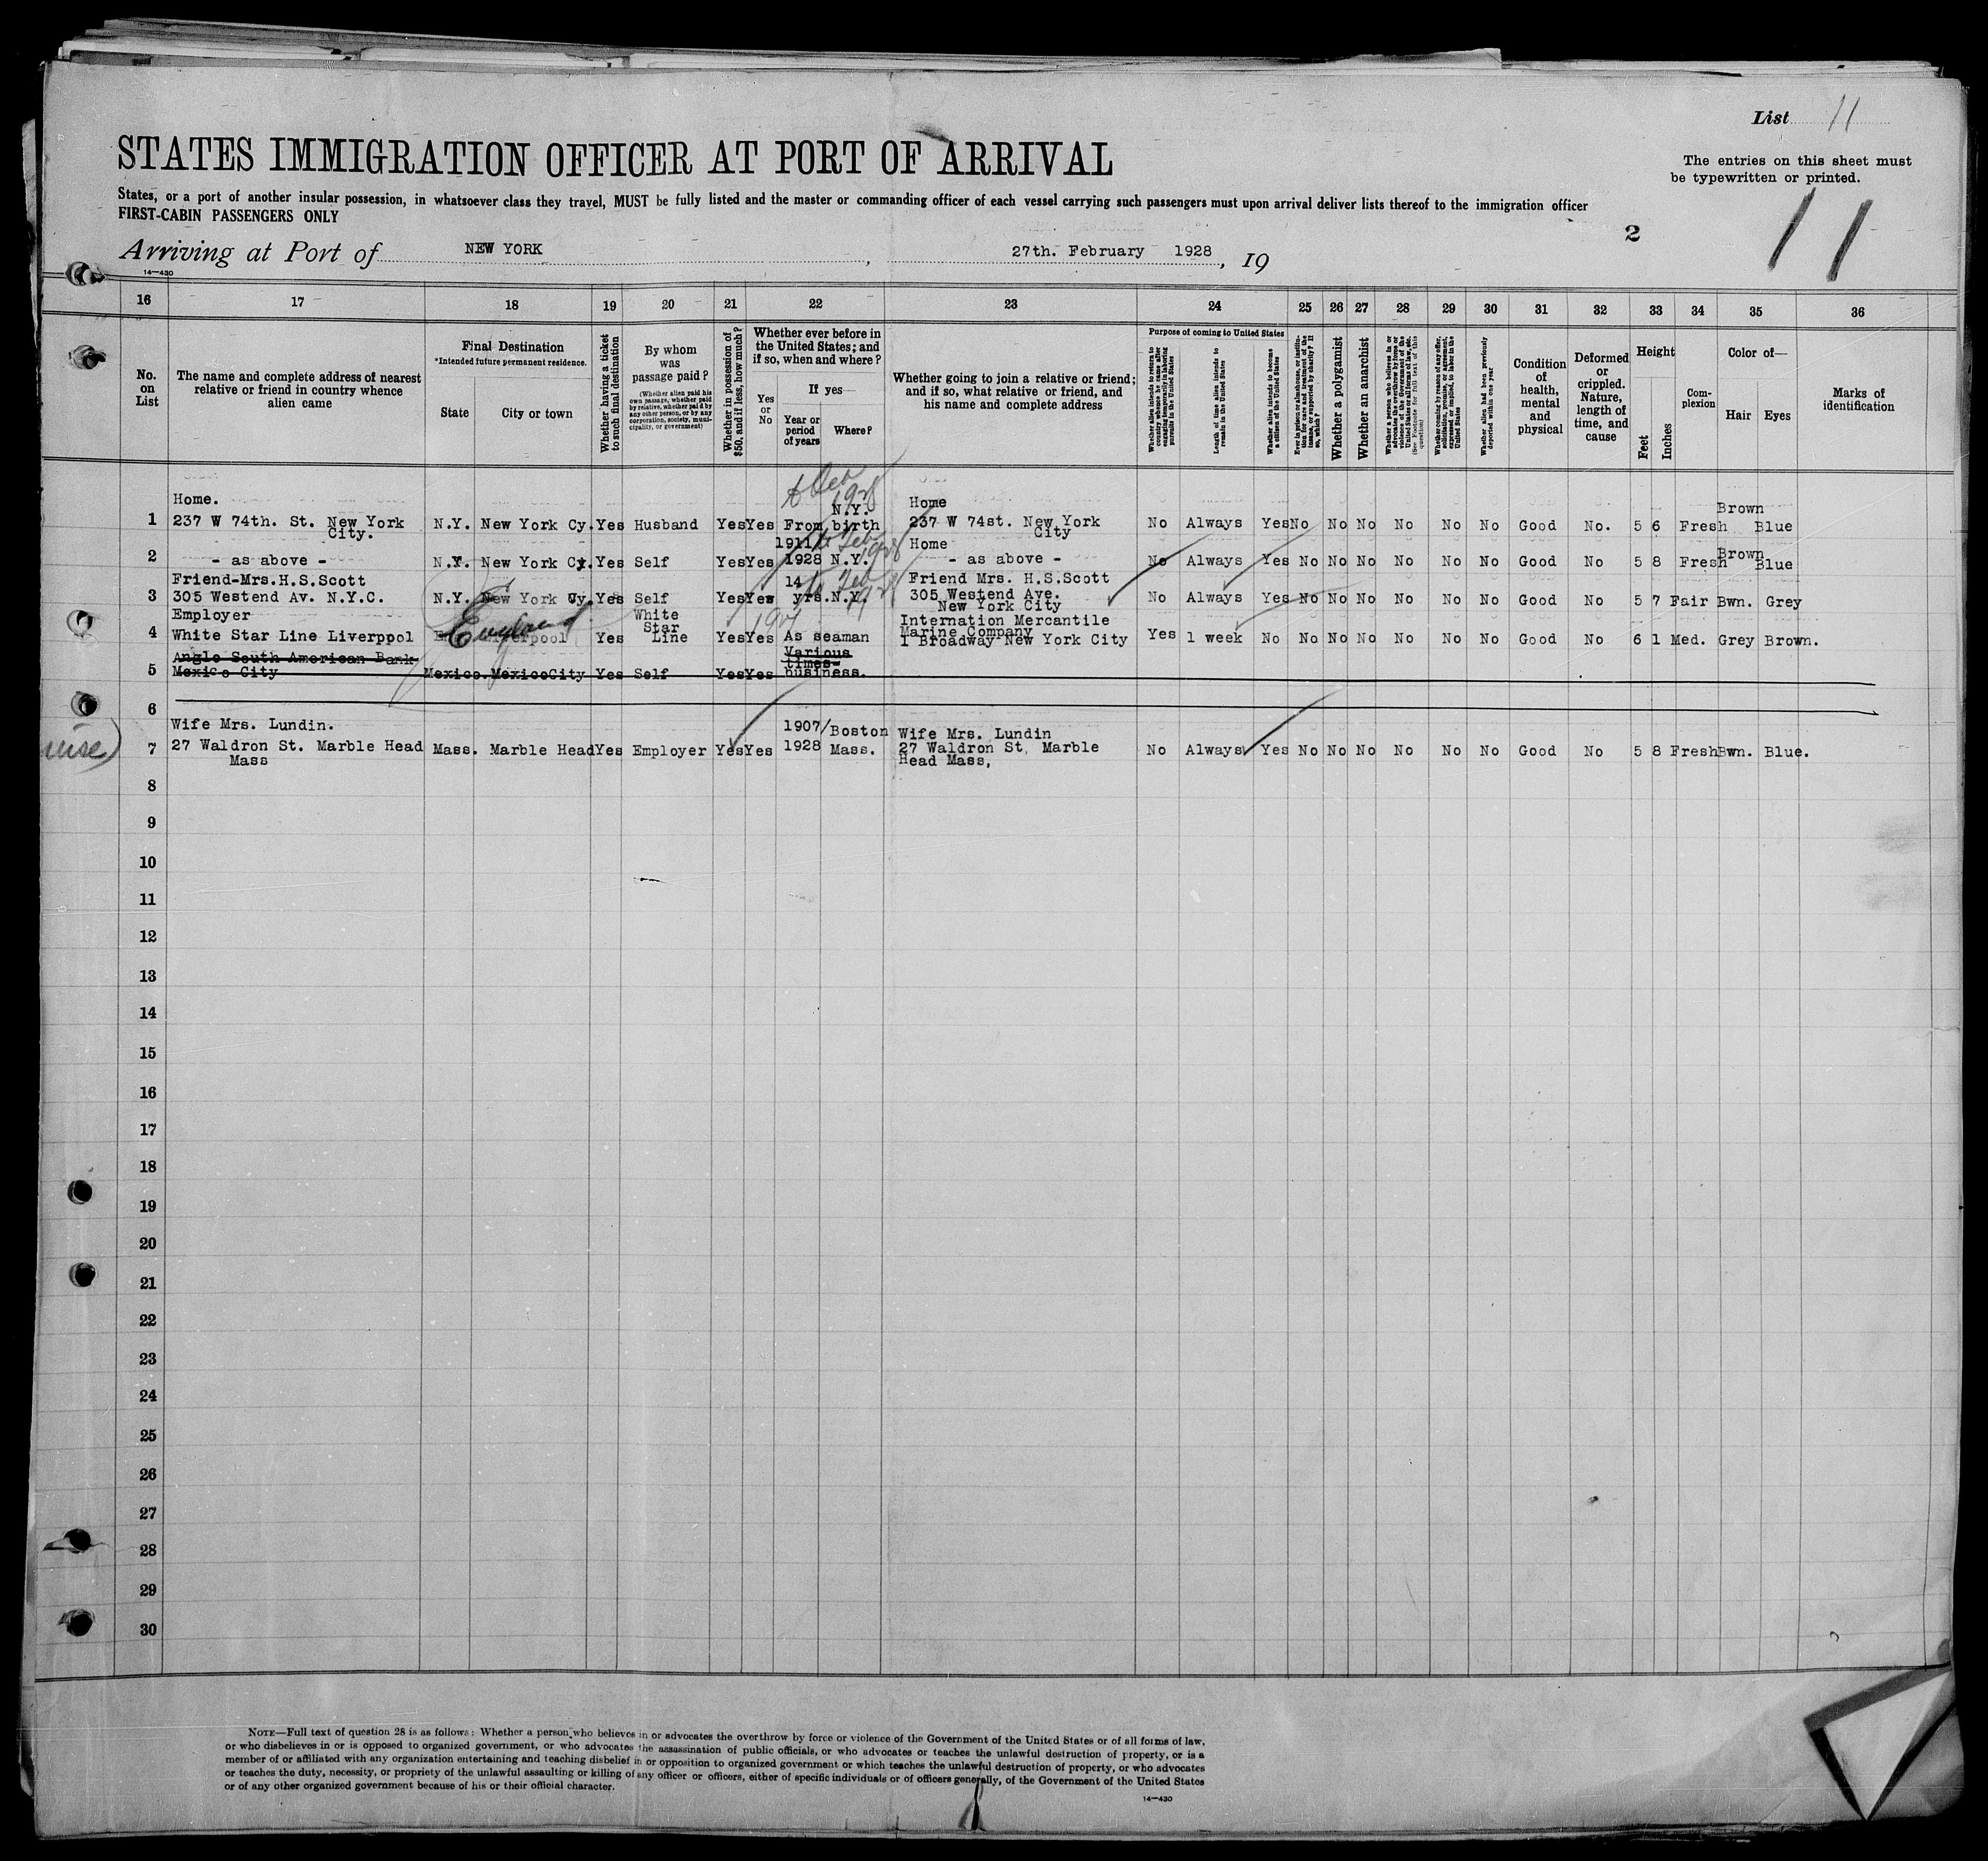 List 11
STATES IMMIGRATION OFFICER AT PORT OF ARRIVAL
The entries on this sheet must
be typewritten or printed.
States, or a port of another insular possession, in whatsoever class they travel, MUST be fully listed and the master or commanding officer of each vessel carrying such passengers must upon arrival deliver lists thereof to the immigration officer
FIRST-CABIN PASSENGERS ONLY
2
11
Arriving at Port of NEW YORK, 27th. February 1928, 19
14-430
16 17 18 19 20 21 22 23 24 25 26 27 28 29 30 31 32 33 34 35 36
No. on List
The name and complete address of nearest relative or friend in country whence alien came
Final Destination
*Intended future permanent residence.
State
City or town
Whether having a ticket to such final destination
By whom was passage paid?
(Whether alien paid his own passage, whether paid by relative, whether paid by any other person, or by any corporation, society, municipality, or government)
Whether in possession of $50, and if less, how much?
Whether ever before in the United States; and if so, when and where?
Yes or No
If yes—
Year or period of years
Where?
Whether going to join a relative or friend; and if so, what relative or friend, and his name and complete address
Purpose of coming to United States
Whether alien intends to return to country whence he came after engaging temporarily in laboring pursuits in the United States
Length of time alien intends to remain in the United States
Whether alien intends to become a citizen of the United States
Ever in prison or almshouse, or institution for care and treatment of the insane, or supported by charity? If so, which?
Whether a polygamist
Whether an anarchist
Whether a person who believes in or advocates the overthrow by force or violence of the Government of the United States or all forms of law, etc. (See Footnote for full text of this question)
Whether coming by reason of any offer, solicitation, promise, or agreement, expressed or implied, to labor in the United States
Whether alien had been previously deported within one year
Condition of health, mental and physical
Deformed or crippled. Nature, length of time, and cause
Height
Feet
Inches
Complexion
Color of—
Hair
Eyes
Marks of identification
Home.
1 237 W 74th. St. New York City. N.Y. New York Cy. Yes Husband Yes Yes From birth N.Y. Home 237 W 74st. New York City No Always Yes No No No No No No Good No. 5 6 Fresh Brown Blue
2 - as above - N.Y. New York Cy. Yes Self Yes Yes 1911/ 1928 N.Y. Home - as above - No Always Yes No No No No No No Good No 5 8 Fresh Brown Blue
Friend-Mrs.H.S.Scott
3 305 Westend Av. N.Y.C. N.Y. New York Cy Yes Self Yes Yes 14 yrs. N.Y. Friend Mrs. H.S.Scott 305 Westend Ave. New York City No Always Yes No No No No No No Good No 5 7 Fair Bwn. Grey
Employer
4 White Star Line Liverppol England Liverpool Yes White Star Line Yes Yes As seaman Internation Mercantile Marine Company 1 Broadway New York City Yes 1 week No No No No No No No Good No 6 1 Med. Grey Brown.
1927
Anglo South American Bank
5 Mexico City Mexico. MexicoCity Yes Self Yes Yes Various times- business.
6
Wife Mrs. Lundin.
7 27 Waldron St. Marble Head Mass Mass. Marble Head Yes Employer Yes Yes 1907/ 1928 Boston Mass. Wife Mrs. Lundin 27 Waldron St, Marble Head Mass, No Always Yes No No No No No No Good No 5 8 Fresh Bwn. Blue.
8
9
10
11
12
13
14
15
16
17
18
19
20
21
22
23
24
25
26
27
28
29
30
NOTE—Full text of question 28 is as follows: Whether a person who believes in or advocates the overthrow by force or violence of the Government of the United States or of all forms of law,
or who disbelieves in or is opposed to organized government, or who advocates the assassination of public officials, or who advocates or teaches the unlawful destruction of property, or is a
member of or affiliated with any organization entertaining and teaching disbelief in or opposition to organized government or which teaches the unlawful destruction of property, or who advocates
or teaches the duty, necessity, or propriety of the unlawful assaulting or killing of any officer or officers, either of specific individuals or of officers generally, of the Government of the United States
or of any other organized government because of his or their official character.
14-430